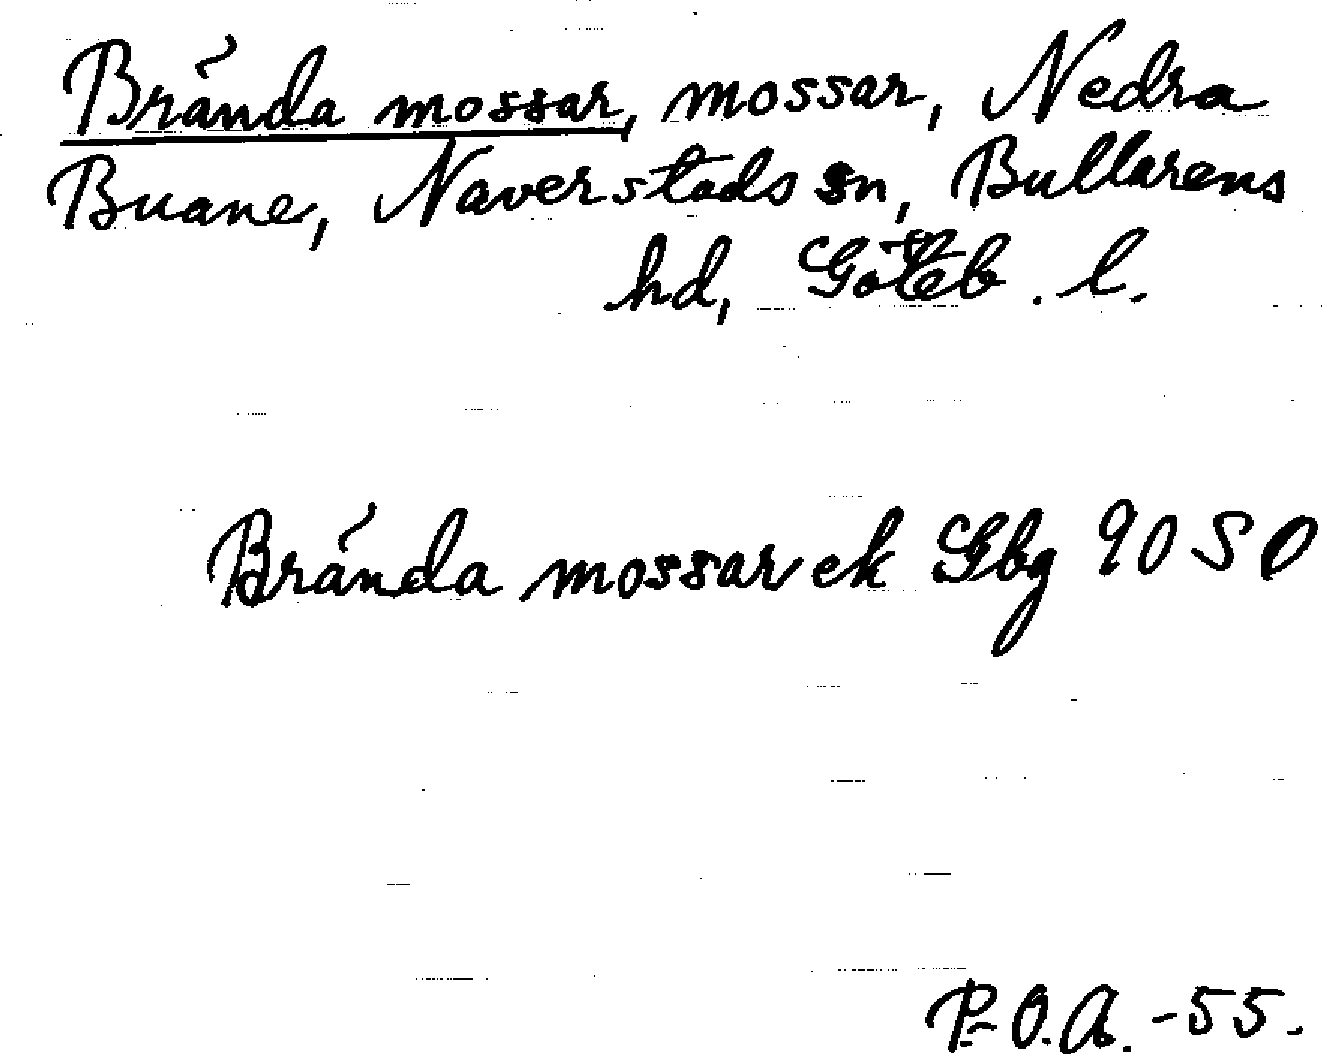 Brända mossar, mossar, Nedra
Buane, Naverstads sn, Bullarens
hd, Göteb. l.
Brända mossar ek Gbg 90 SO
P.O.A. -55.